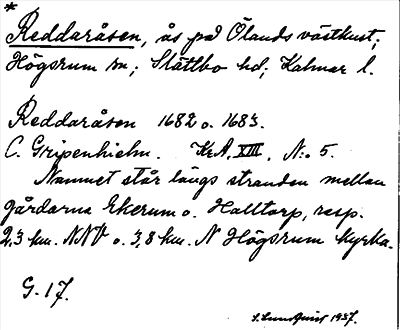 *
Reddaråsen, ås på Ölands västkust;
Högsrum sn; Slättbo hd; Kalmar l.
Reddaråsen 1682 o. 1683.
C. Gripenhielm. KrA, XIII, N:o 5.
Namnet står längs stranden mellan
gårdarna Ekerum o. Halltorp, resp.
2,3 km. NNV o. 3,8 km. N Högsrum kyrka.
G. 17.
S. Lundquist 1937.